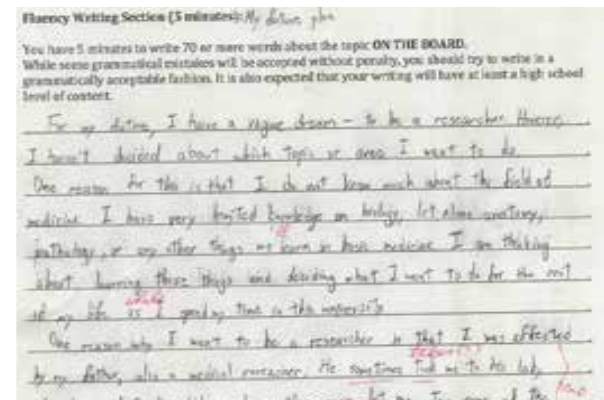 Fluency Writing Section (5 minutes): My future plan
You have 5 minutes to write 70 or more words about the topic ON THE BOARD.
While some grammatical mistakes will be accepted without penalty, you should try to write in a
grammatically acceptable fashion. It is also expected that your writing will have at least a high school
level of content.
For my future, I have a vague dream - to be a researcher. However,
I haven't decided about which topic or area I want to do.
One reason for this is that I do not know much about the field of
medicine. I have very limited knowledge on biology, let alone anatomy,
of
pathology, or any other things we learn in basic medicine. I am thinking
about learning these things and deciding what I want to do for the rest
while
of my life as I spend my time in this university
One reason why I want to be a researcher is that I was effected
by my father, also a medical researcher. He sometimes took me to his lab,
let me
of the